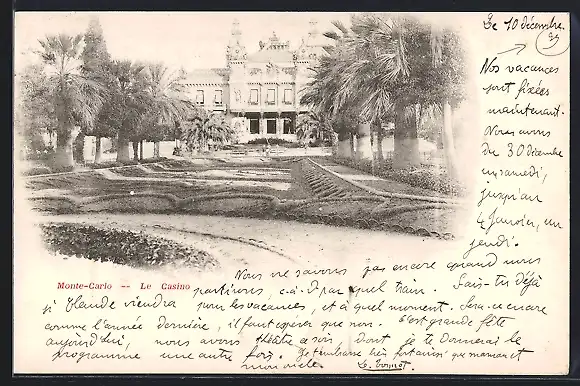 Le 10 décembre.
99
Nos vacances
sont fixées
maintenant.
Nous avons
du 30 Décembre
un samedi,
jusqu'au
4 Janvier, un
jeudi.
Nous ne savons pas encore quand nous
Monte-Carlo -- Le Casino
partirons, c.à.d par quel train. Sais-tu déjà
si Claude viendra pour les vacances, et à quel moment. Sera-ce encore
comme l'année dernière, il faut espérer que non. C'est grande fête
aujourd'hui, nous avons théâtre ce soir dont je te donnerai le
programme une autre fois. Je t'embrasse très fort ainsi que maman et
mon oncle.